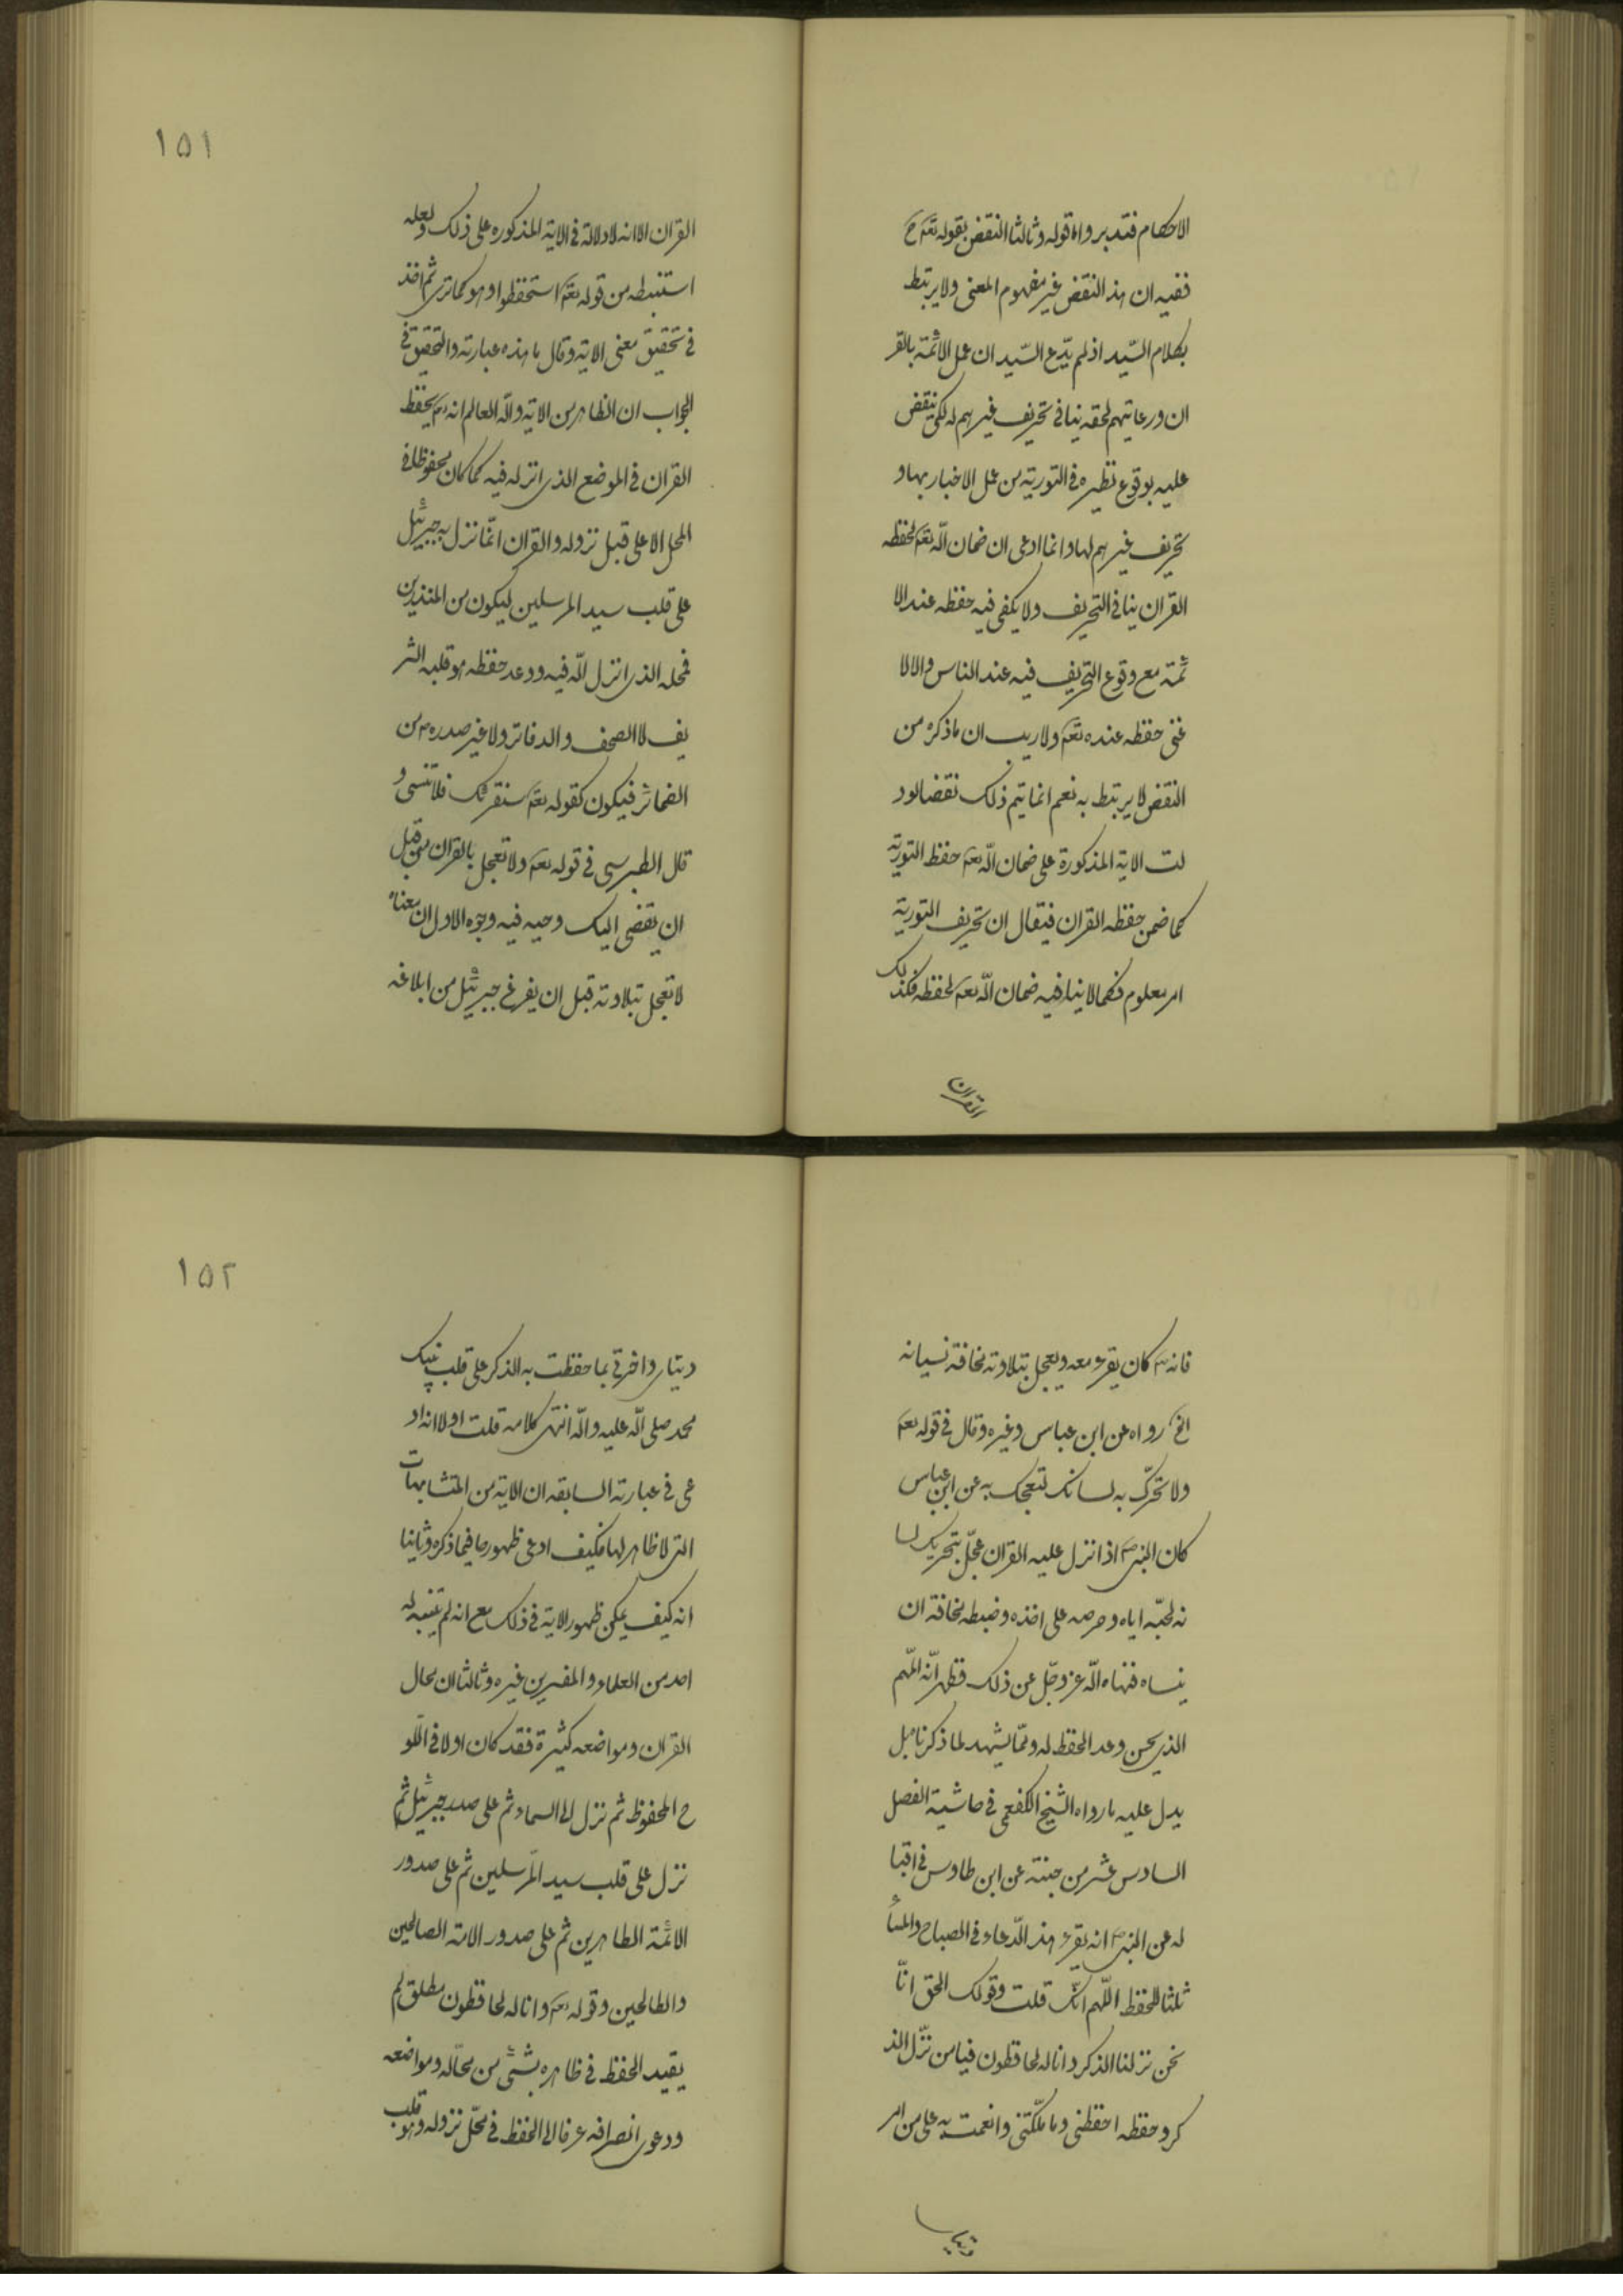 الاحكام فتدبر واما قوله وثالثا النقض بقوله تعم ح
ففيه ان هذا النقض غير مفهوم المعنى ولا يرتبط
بكلام السّيد اذ لم يدّع السّيد ان عمل الائمة بالقر
ان ورعايتهم لحقه ينافى تحريف غيرهم له لكى ينقض
عليه بوقوع نظيره فى التورية من عمل الاخبار بها و
تحريف غيرهم لها وانما ادعى ان ضمان الله تعم لحفظه
القران ينافى التحريف ولا يكفى فيه حفظه عند الا
ئمة مع وقوع التحريف فيه عند الناس والا لا
غنى حفظه عنده تعم ولا ريب ان ما ذكره من
النقض لا يرتبط به نعم انما يتم ذلك نقضا لو د
لت الاية المذكورة على ضمان الله تعم حفظ التورية
كما ضمن حفظه القران فيقال ان تحريف التورية
امر معلوم فكما لا ينافيه ضمان الله تعم لحفظه فكذلك
القران
١٥١
القران الا انه لا دلالة فى الاية المذكوره على ذلك ولعله
استنبطه من قوله تعم استحفظوا وهو كما ترى ثم اخذ
فى تحقيق معنى الاية وقال ما هذه عبارته والتحقيق فى
الجواب ان الظاهر من الاية والله العالم انه تعم يحفظ
القران فى الموضع الذى انزله فيه كما كان محفوظا فى
المحل الاعلى قبل نزوله والقران انّما نزل به جبرئيل
على قلب سيد المرسلين ليكون من المنذرين
فمحله الذى انزل الله فيه ووعد حفظه هو قلبه الشر
يف لا الصحف والدفاتر ولا غير صدره ص من
الضمائر فيكون كقوله تعم سنقرئك فلا تنسى و
قال الطبرسى فى قوله تعم ولا تعجل بالقران من قبل
ان يقضى اليك وحيه فيه وجوه الاول ان معناه
لا تعجل بتلاوته قبل ان يفرغ جبرئيل من ابلاغه
فانه ص كان يقرء معه ويعجل بتلاوته مخافة نسيانه
الخ رواه عن ابن عباس وغيره وقال فى قوله تعم
ولا تحرّك به لسانك لتعجل به عن ابن عباس
كان النبى ص اذا نزل عليه القران عجّل بتحريك لسا
نه لحبّه اياه وحرصه على اخذه وضبطه مخافة ان
ينساه فنهاه الله عز وجّل عن ذلك فظهر انّه المهم
الذى يحسن وعد الحفظ له وممّا يشهد لما ذكرنا بل
يدل عليه ما رواه الشيخ الكفعمى فى حاشية الفصل
السادس عشر من جنته عن ابن طاوس فى اقبا
له عن النبى ص انه يقرء هذا الدّعاء فى الصباح والمساء
ثلثا للحفظ اللّهم انّك قلت وقولك الحق انّا
نحن نزلنا الذكر وانا له لحافظون فيا من نزّل الذ
كر وحفظه احفظنى وما ملّكتنى وانعمت به على من امر
دنياى
١٥٢
دنياى واخرتى بما حفظت به الذكر على قلب نبيك
محمد صلى الله عليه واله انتهى كلامه قلت اولا انه اد
عى فى عبارته السابقه ان الاية من المتشابهات
التى لا ظاهر لها فكيف ادعى ظهورها فيما ذكره وثانيا
انه كيف يمكن ظهور الاية فى ذلك مع انه لم يتنبه له
احد من العلماء والمفسرين غيره وثالثا ان محال
القران ومواضعه كثيرة فقد كان اولا فى اللو
ح المحفوظ ثم نزل الى السماء ثم على صدر جبرئيل ثم
نزل على قلب سيد المرسلين ثم على صدور
الائمة الطاهرين ثم على صدور الامة الصالحين
والطالحين وقوله تعم وانا له لحافظون مطلق لم
يقيد الحفظ فى ظاهره بشئ من محّاله ومواضعه
ودعوى انصرافه عرفا الى الحفظ فى محّل نزوله وهو قلب